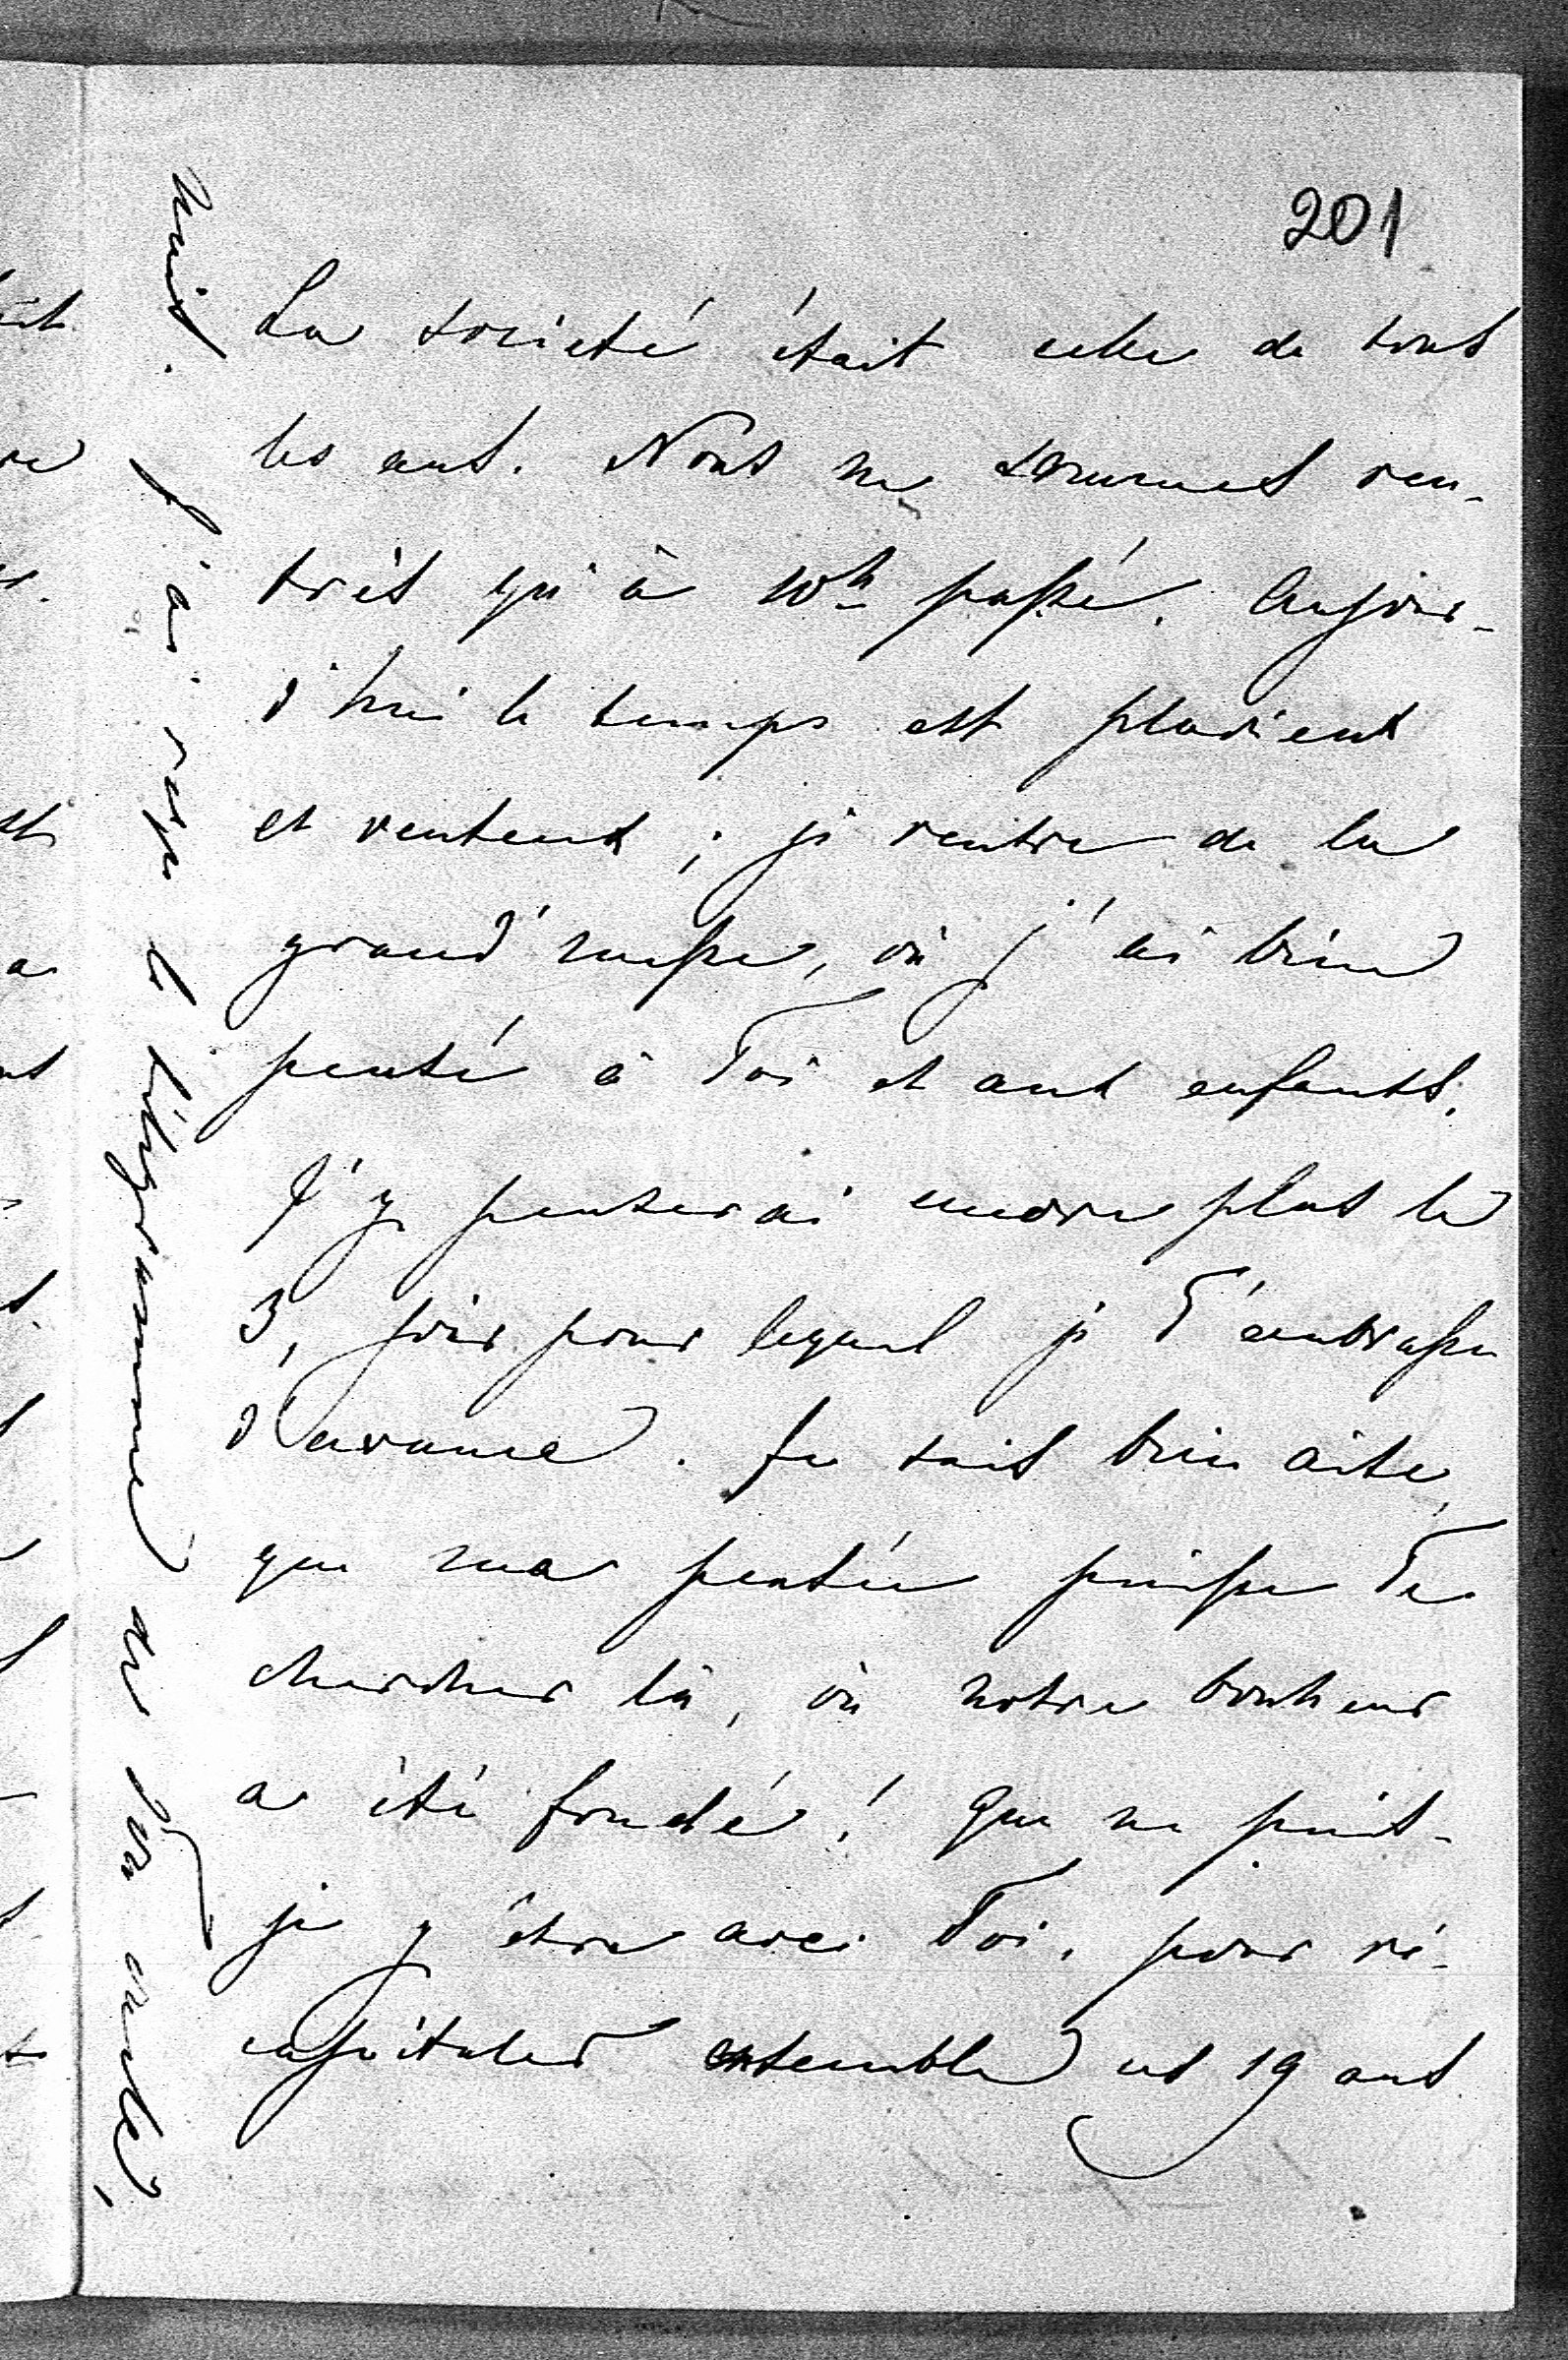 201
La société était celle de tous
les ans. Nous ne sommes ren-
trés qu'à 10h passé. Aujour-
d'hui le temps est pluvieux
et venteux ; je rentre de la
grand'messe, où j'ai bien
pensé à Toi et aux enfants.
J'y penserai encore plus le
3, jour pour lequel je T'embrasse
d'avance. Je suis bien aise,
que ma pensée puisse Te
chercher là, où notre bonheur
a été fondé ! Que ne puis-
je y être avec Toi, pour ré-
capituler ensemble ces 19 ans
nuit. J'ai reçu le télégramme de